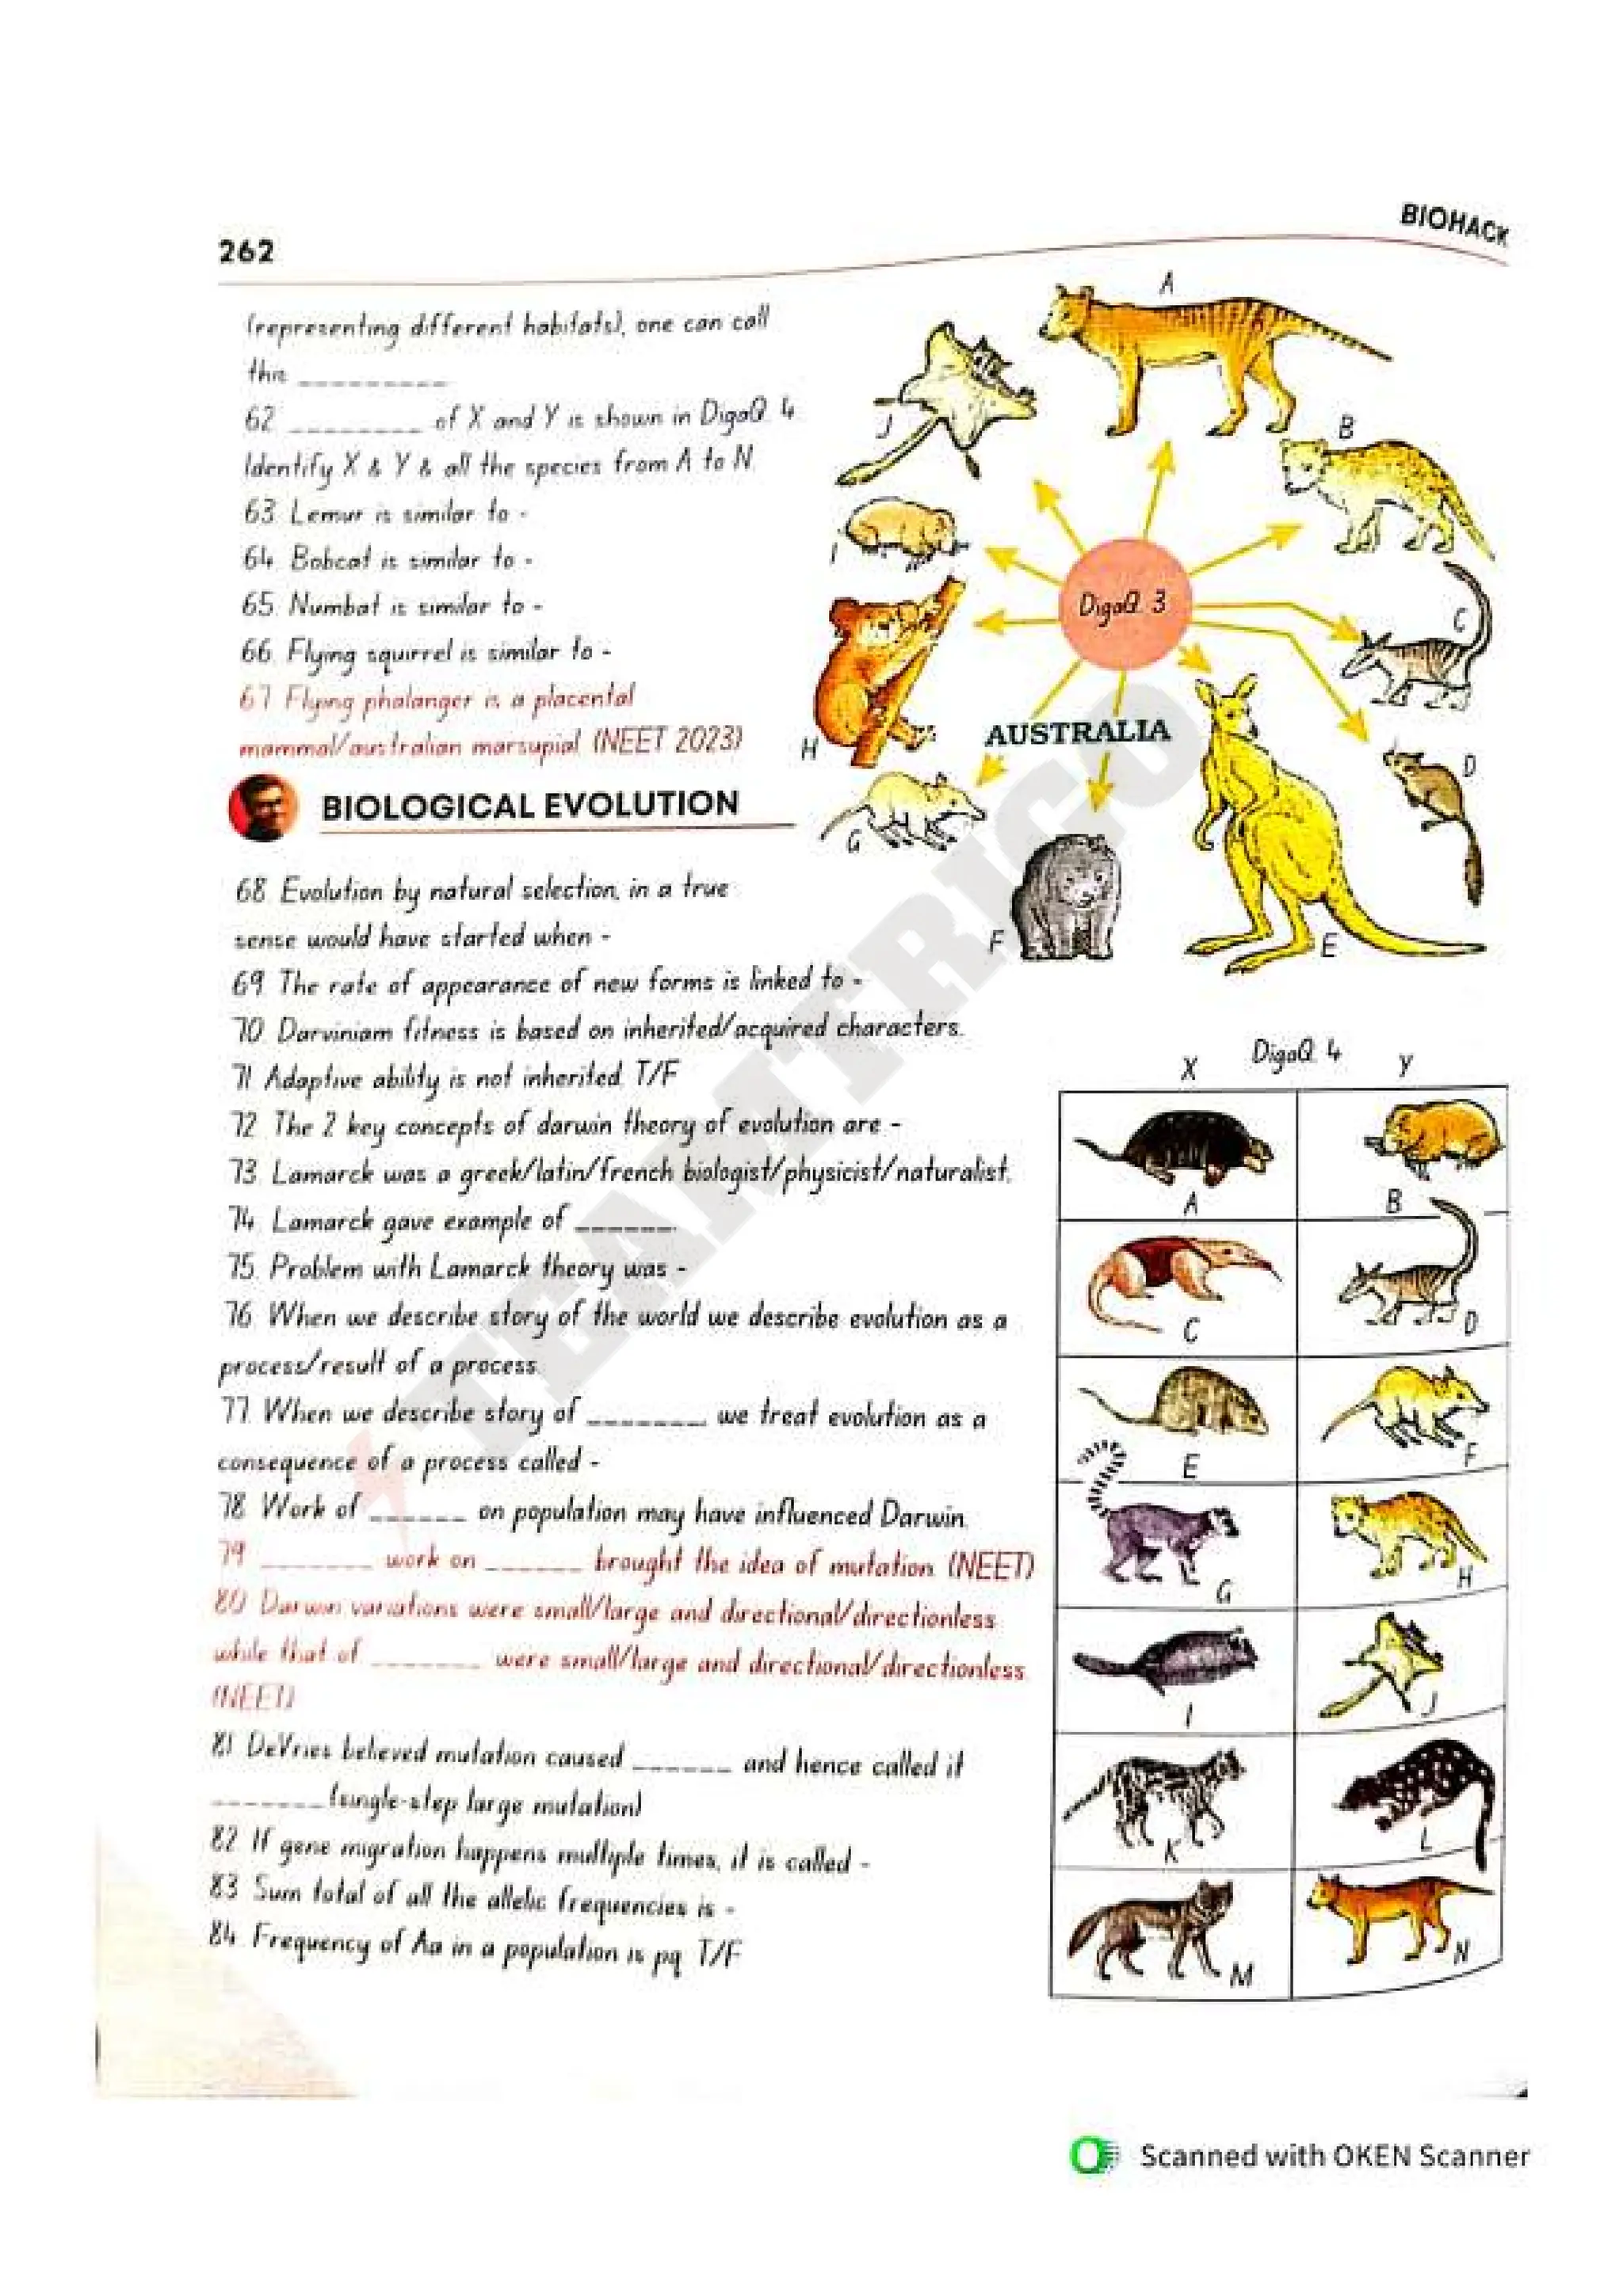 262
BIOHACK
(representing different habitats), one can call
this _________
62. ________ of X and Y is shown in DigaQ. 4
Identify X & Y & all the species from A to N.
63. Lemur is similar to -
64. Bobcat is similar to -
65. Numbat is similar to -
66. Flying squirrel is similar to -
67. Flying phalanger is a placental
mammal/australian marsupial. (NEET 2023)
BIOLOGICAL EVOLUTION
68. Evolution by natural selection, in a true
sense would have started when -
69. The rate of appearance of new forms is linked to -
70. Darviniam fitness is based on inherited/acquired characters.
71. Adaptive ability is not inherited. T/F
72. The 2 key concepts of darwin theory of evolution are -
73. Lamarck was a greek/latin/french biologist/physicist/naturalist.
74. Lamarck gave example of ______.
75. Problem with Lamarck theory was -
76. When we describe story of the world we describe evolution as a
process/result of a process.
77. When we describe story of _______ we treat evolution as a
consequence of a process called -
78. Work of ______ on population may have influenced Darwin.
79. _______ work on ______ brought the idea of mutation. (NEET)
80. Darwin variations were small/large and directional/directionless
while that of _______ were small/large and directional/directionless
(NEET)
81. DeVries believed mutation caused ______ and hence called it
_______(single-step large mutation)
82. If gene migration happens multiple times, it is called -
83. Sum total of all the allelic frequencies is -
84. Frequency of Aa in a population is pq. T/F
A
J
B
I
DigaQ. 3
C
H
AUSTRALIA
D
G
F
E
DigaQ. 4
X
Y
A
B
C
D
E
F
G
H
I
J
K
L
M
N
TEAMTRIGO
Scanned with OKEN Scanner